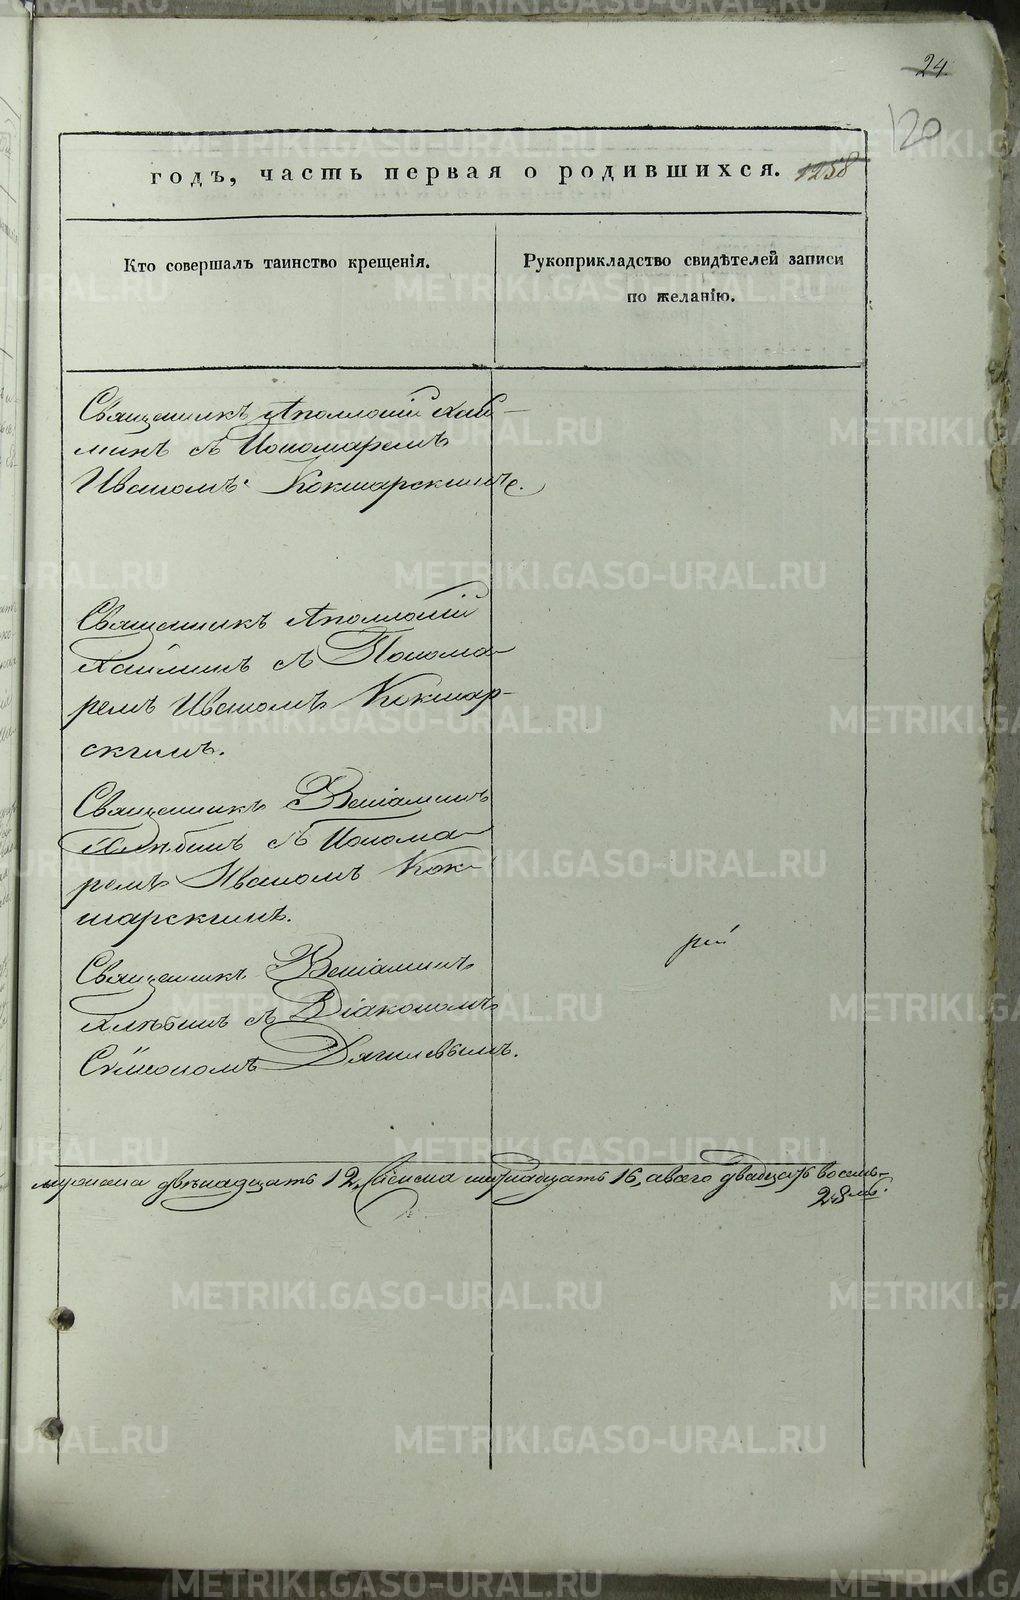 24.
120
годъ, часть первая о родившихся. 1258
Кто совершалъ таинство крещенія.
Рукоприкладство свидѣтелей записи
по желанію.
Священникъ Аполлоній Хай-
минъ съ Пономаремъ
Иваномъ Кокшарскимъ.
Священникъ Аполлоній
съ Понома-
ремъ Иваномъ Кокшар-
скимъ.
Священникъ Веніаминъ
Хлѣбинъ съ Понома-
ремъ Иваномъ Кок-
шарскимъ.
Священникъ Веніаминъ
Хлѣбинъ съ Діакономъ
Сѵмеономъ Дягилевымъ.
двѣнадцать 12, шестнадцать 16, а всего двадцать восемь-
28мь.
METRIKI.GASO-URAL.RU